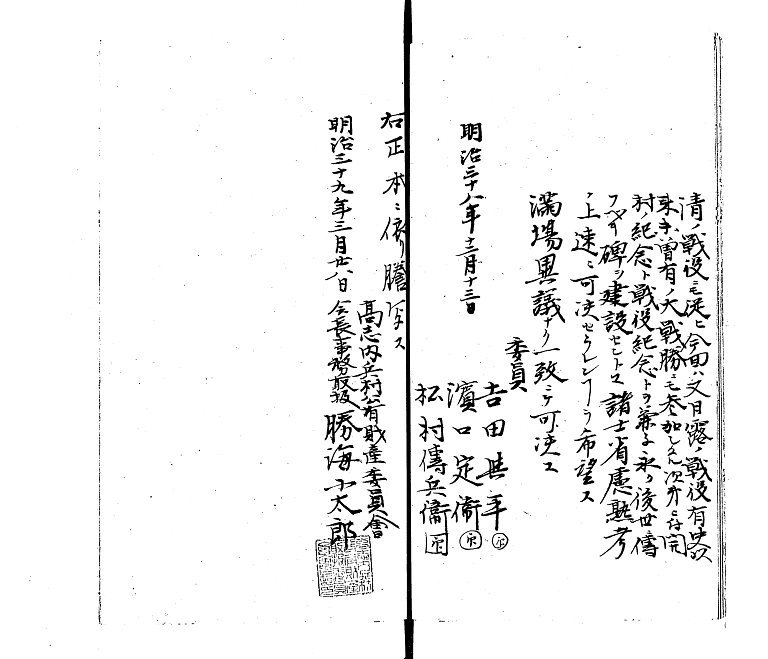 清ノ戦役ニモ従ヒ今回ハ又日露ノ戦役有史以
来未曽有ノ大戦勝ニモ参加シタル次第ニ付開
村ノ紀念ト戦役紀念トヲ兼子永ク後世傳
フベキ碑ヲ建設セントス諸士省慮熟考
ノ上速ニ可决セラレンヿヲ希望ス
満場異議ナク一致ニテ可决ス
明治三十八年十二月十三日
委員
吉田 平
濱口定衛
松村傳兵衛
右正本ニ依リ謄写ス
高志内兵村公有財産委員會
明治三十九年三月廿八日 会長事務取扱 勝海 太郎